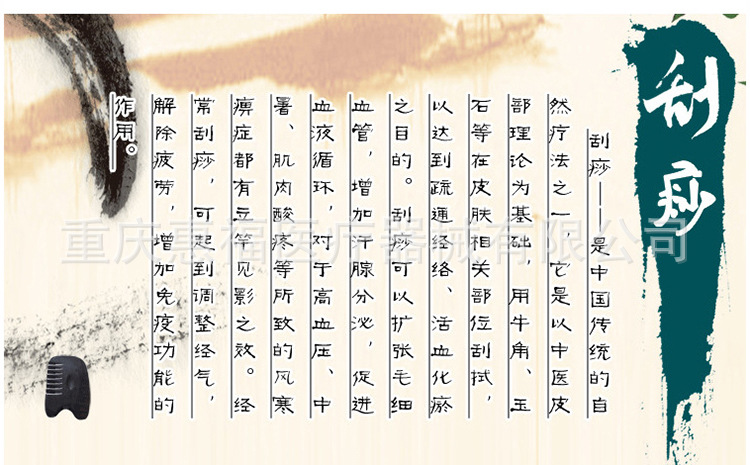 刮痧
刮痧——是中国传统的自
然疗法之一，它是以中医皮
部理论为基础，用牛角、玉
石等在皮肤相关部位刮拭，
以达到疏通经络、活血化瘀
之目的。刮痧可以扩张毛细
血管，增加汗腺分泌，促进
血液循环，对于高血压、中
暑、肌肉酸疼等所致的风寒
痹症都有立竿见影之效。经
常刮痧，可起到调整经气，
解除疲劳，增加免疫功能的
作用。
重庆惠福医疗器械有限公司